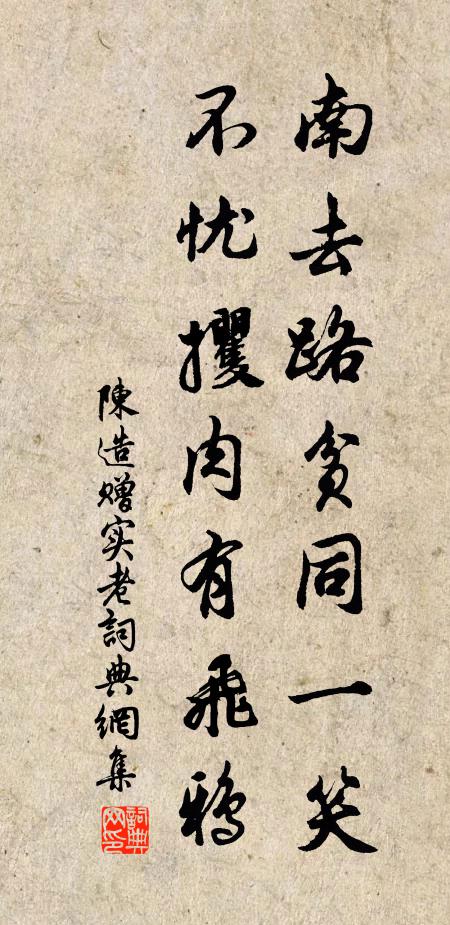 南去路贫同一笑
不忧攫肉有飞鸦
陳造赠实老詞典網集
詞典網印